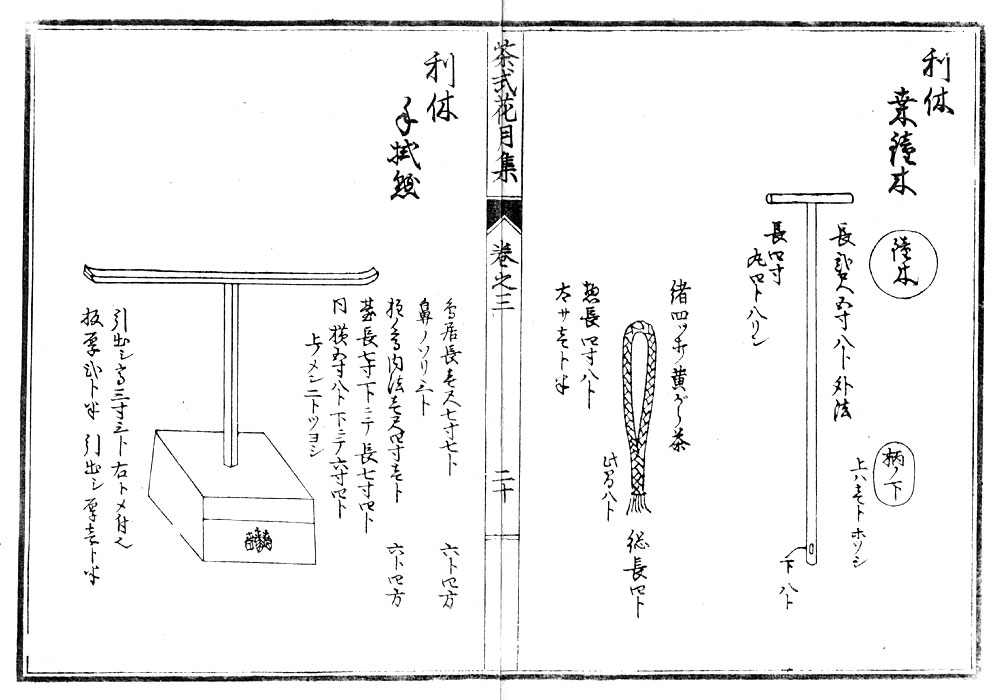 利休
喪鐘木
撞木
長弐尺五寸八ト外法
長四寸
丸四ト八リン
柄ノ下
上ハ壱ト ホソシ
下 八ト
緒四ツ打 黄がら茶
惣長四寸八ト
太サ壱ト半
此間八ト
総長四ト
茶式花月集
巻之三
二十
利休
手拭懸
鳥居長壱尺七寸七ト 六ト四方
鼻ノソリ三ト
板ノ高内法壱尺四寸壱ト 六ト四方
台長七寸下ニテ長七寸四ト
同横五寸八ト下ニテ六寸四ト
上ノメン二トツヨシ
引出シ高三寸三ト右トメ付ル
板厚弐ト半 引出シ厚壱ト半